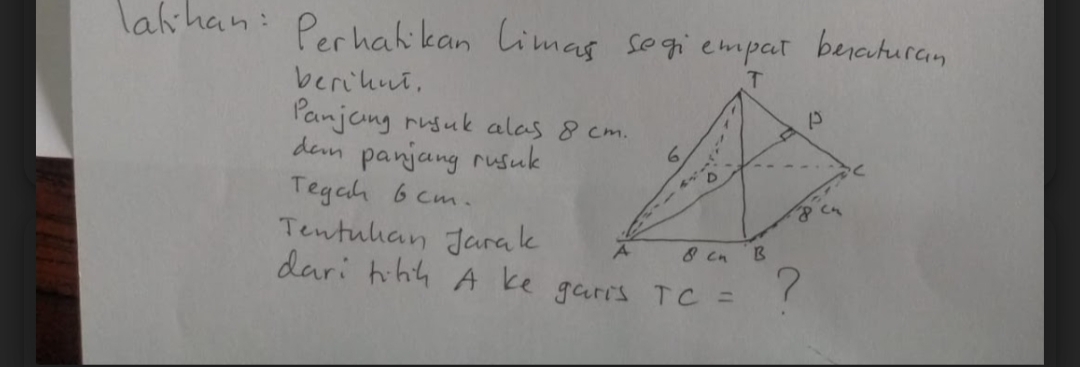 latihan: Perhatikan limas segi empat beraturan
berikut.
Panjang rusuk alas 8 cm.
dan panjang rusuk
Tegak 6 cm.
Tentukan Jarak
dari titik A ke garis TC = ?
T
P
6
D
C
8 cm
A
8 cm
B